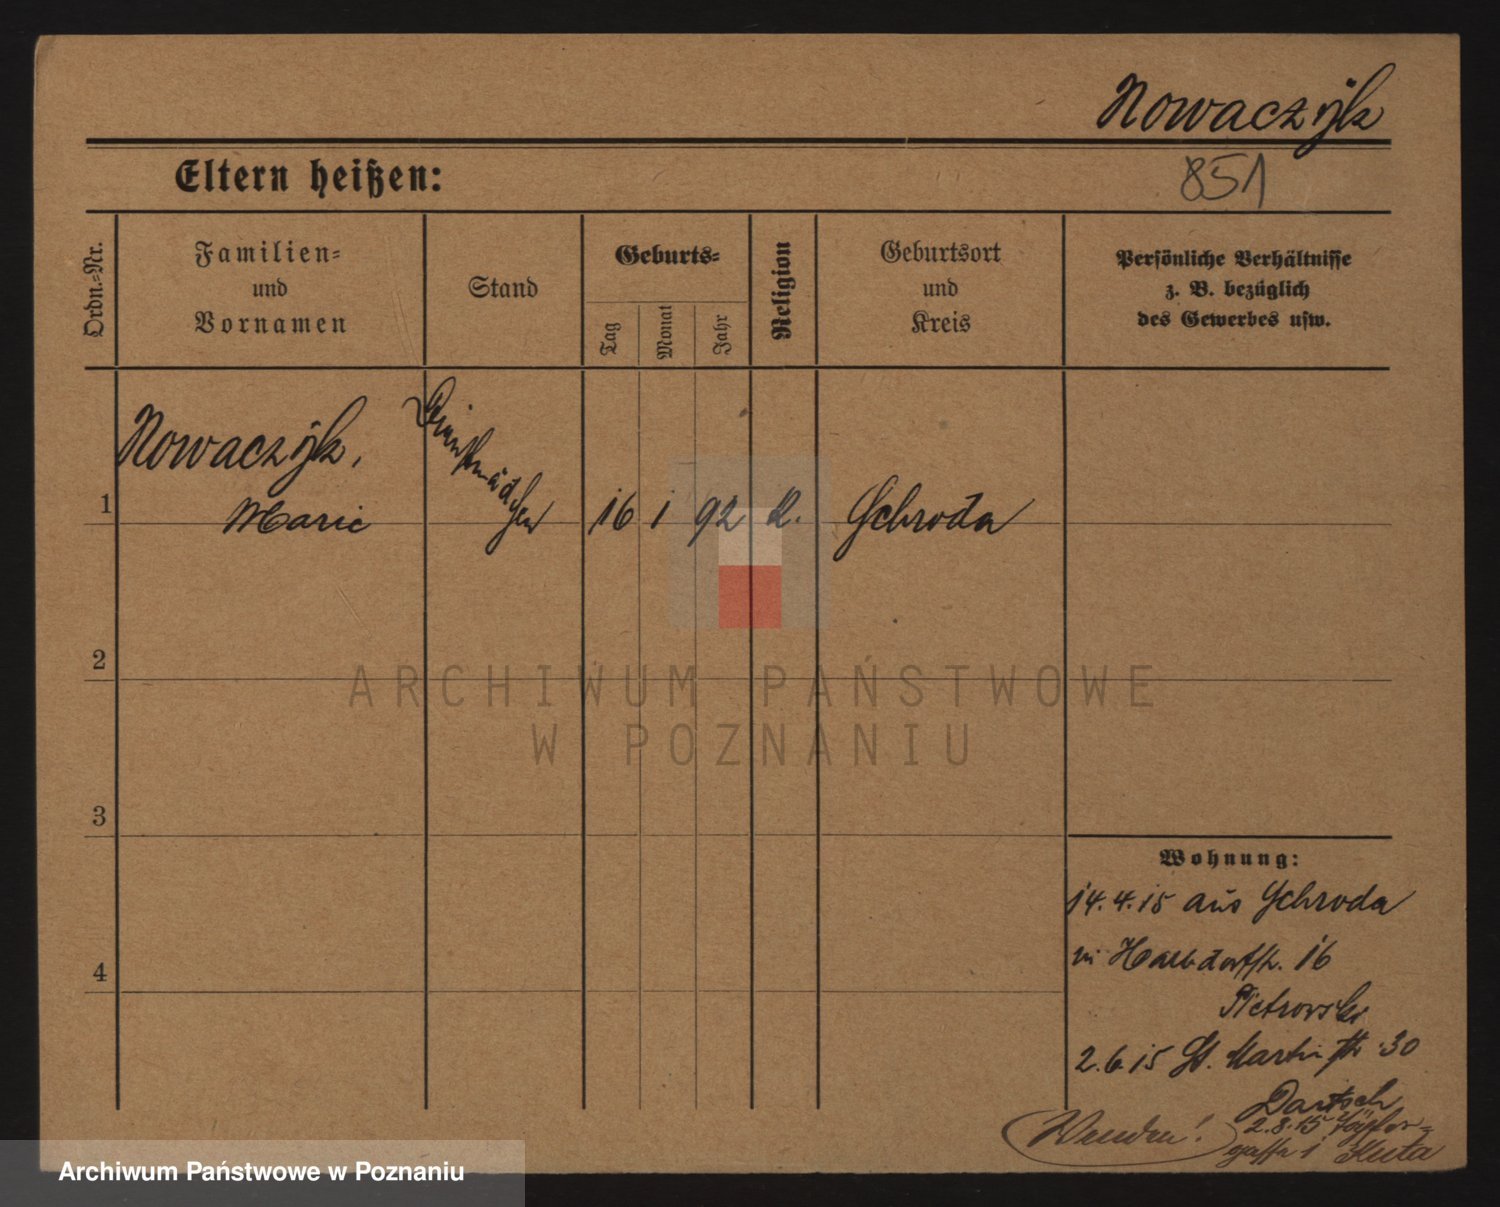 Nowaczÿk
851
Eltern heißen:
Ordn.=Nr.
Familien=
und
Vornamen
Stand
Geburts=
Tag
Monat
Jahr
Religion
Geburtsort
und
Kreis
Persönliche Verhältnisse
z. B. bezüglich
des Gewerbes usw.
1
Nowaczÿk,
Marie
Dienstmädchen
16
1
92
K.
Schroda
2
3
4
ARCHIWUM PAŃSTWOWE
W POZNANIU
Wohnung:
14.4.15 aus Schroda
in Halbdorfstr. 16
Pietrowski
2.6.15 St. Martinstr 30
Dartsch
2.8.15
gasse 1 Kuta
Wenden!
Archiwum Państwowe w Poznaniu